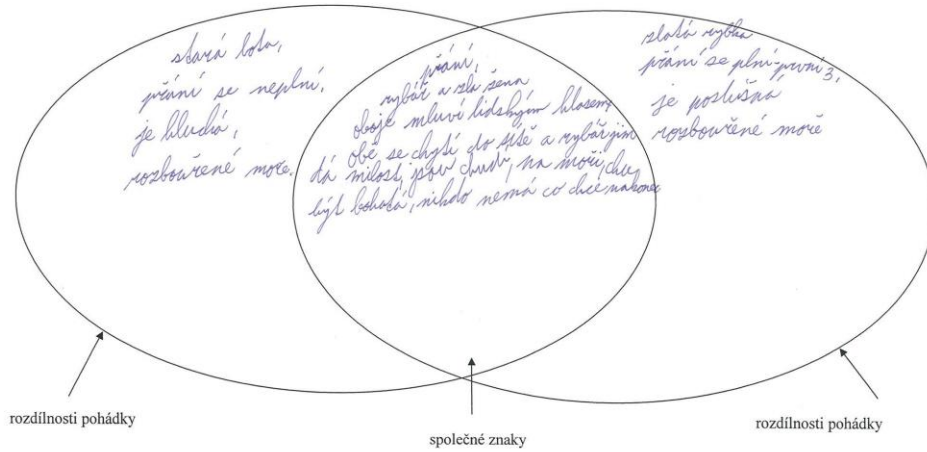 stará bota,
přání se neplní,
je hluchá,
rozbouřené moře.
přání,
rybář a zlá žena
oboje mluví lidským hlasem,
obě se chytí do sítě a rybář jim
dá milost, jsou chudí, na moři, chce
být bohatá, nikdo nemá co chce nakonec
zlatá rybka
přání se plní - první 3,
je poslušná
rozbouřené moře
rozdílnosti pohádky
společné znaky
rozdílnosti pohádky